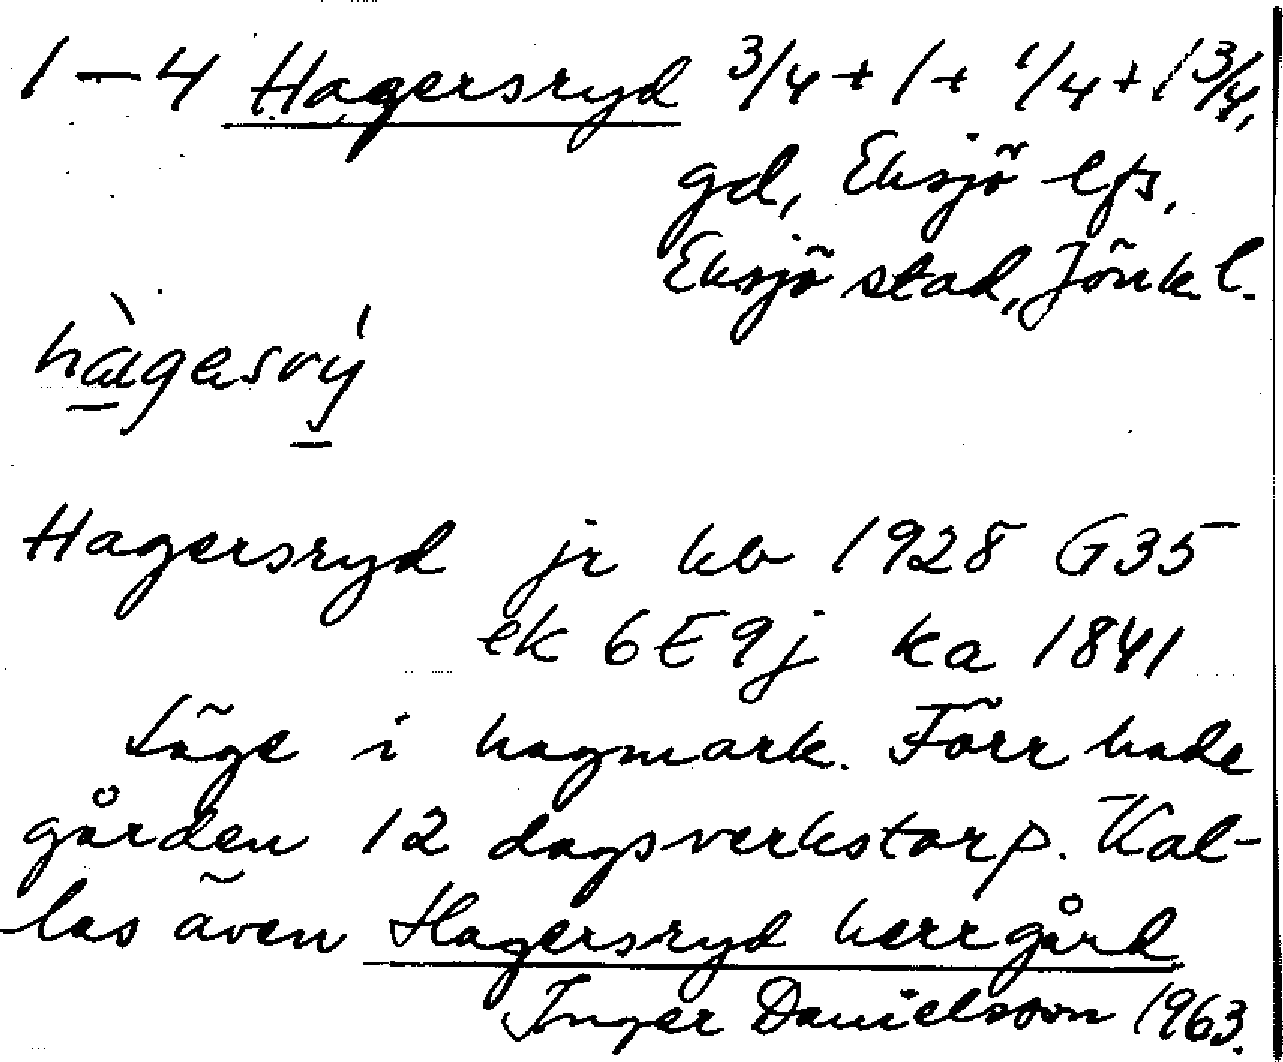 1–4 Hagersryd 3/4 + 1 + 1/4 + 1 3/4,
gd, Eksjö lfs,
Eksjö stad, Jönk. l.
hàgasrý
Hagersryd jr kb 1928 G35
ek 6E9j ka 1841
Läge i hagmark. Förr hade
gården 12 dagsverkstorp. Kal-
las även Hagersryd herrgård
Inger Danielsson 1963.